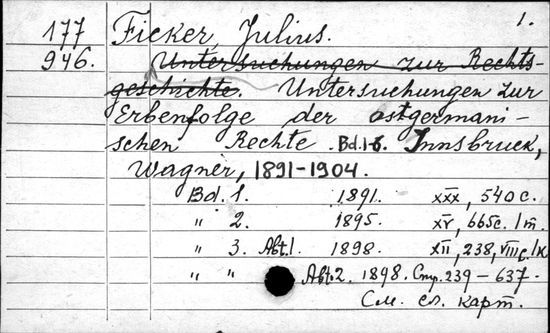 1.
177 Ficker, Julius.
946. Untersuchungen zur Rechts-
geschichte. Untersuchungen zur
Erbenfolge der ostgermani-
schen Rechte. Bd. 1-6. Innsbruck,
Wagner, 1891-1904.
Bd. 1. 1891. XXX, 540 с.
" 2. 1895. XV, 665 с.
" 3. Abt. 1. 1898. XII, 238, VIII с.
" " Abt. 2. 1898. Стр. 239-637.
См. сл. карт.